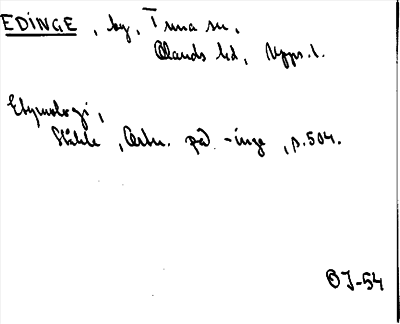 EDINGE, by, Tuna sn,
Olands hd, Upps. l.
Etymologi,
Ståhle, Ortn. på -inge, p. 504.
OJ-54